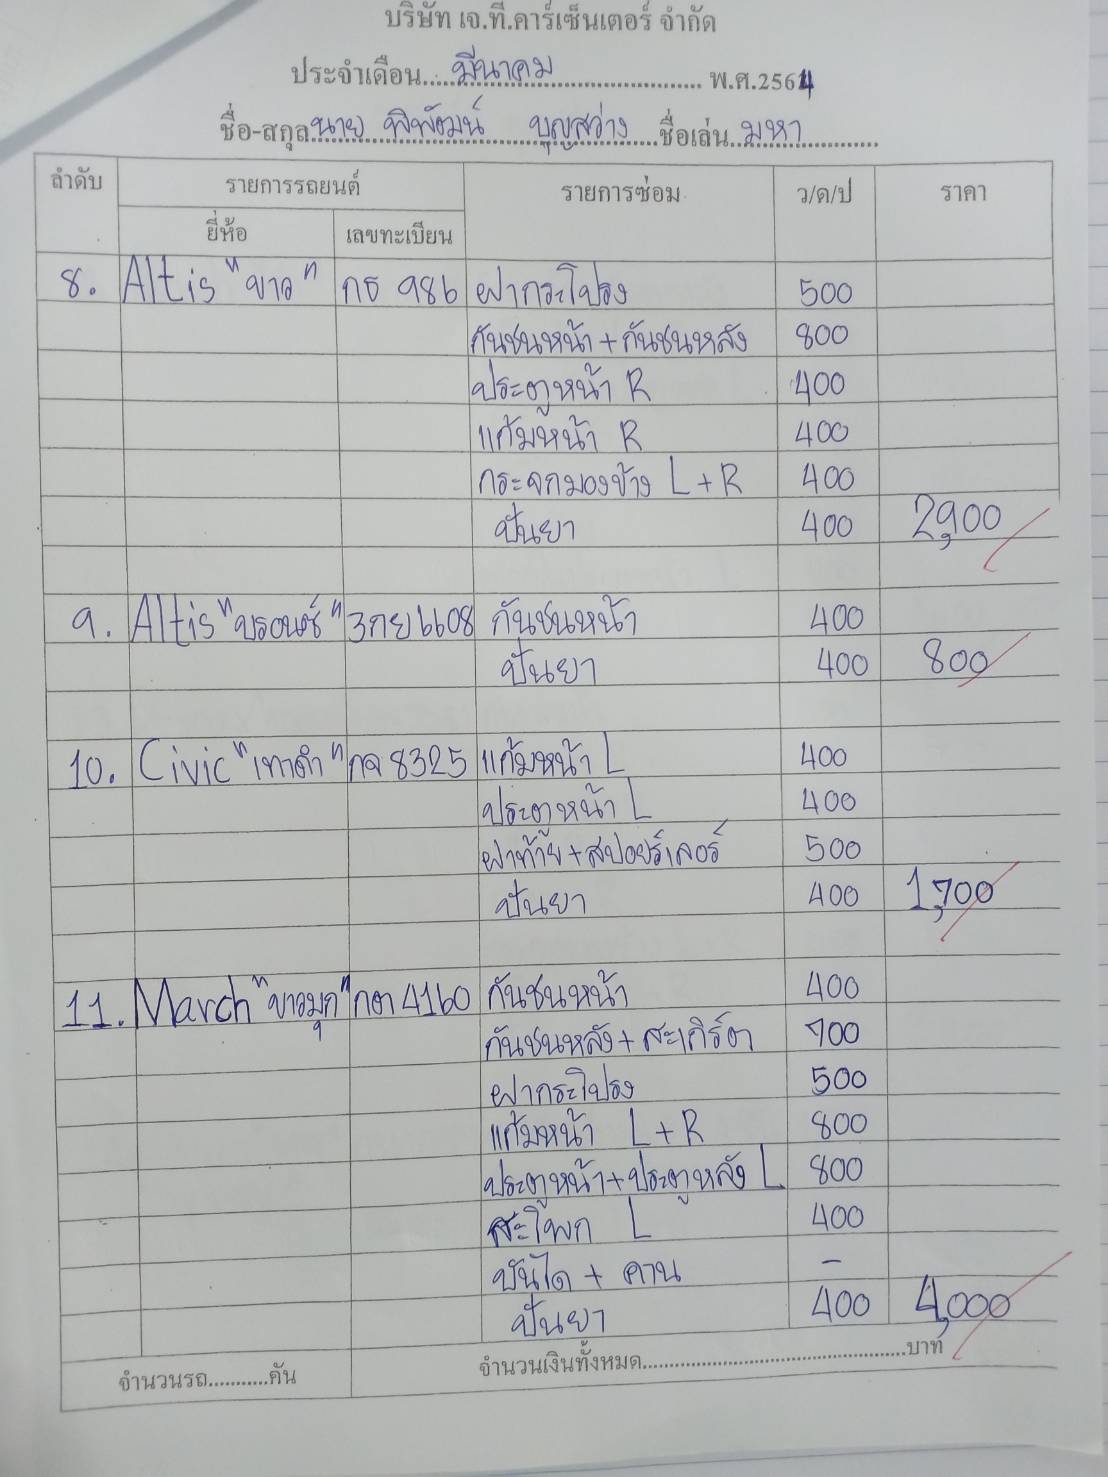 บริษัท เจ.ที.คาร์เซ็นเตอร์ จำกัด
ประจำเดือน....มีนาคม.................... พ.ศ.2564
ชื่อ-สกุล.นาย พิพัฒน์ บุญสว่าง....ชื่อเล่น..มหา..........
ลำดับ รายการรถยนต์ รายการซ่อม ว/ด/ป ราคา
ยี่ห้อ เลขทะเบียน
8. Altis "ขาว" กธ 986 ฝากระโปรง 500
กันชนหน้า + กันชนหลัง 800
ประตูหน้า R 400
แก้มหน้า R 400
กระจกมองข้าง L + R 400
ปั่นยา 400 2,900
9. Altis "บรอนซ์" 3กย6608 กันชนหน้า 400
ปั่นยา 400 800
10. Civic "เทาดำ" กจ 8325 แก้มหน้า L 400
ประตูหน้า L 400
ฝาท้าย + สปอยร์เลอร์ 500
ปั่นยา 400 1,700
11. March "ขาวมุก" กต 4160 กันชนหน้า 400
กันชนหลัง + สะเกิร์ต 700
ฝากระโปรง 500
แก้มหน้า L + R 800
ประตูหน้า + ประตูหลัง L 800
สะโพก L 400
บันได + คาน -
ปั่นยา 400 4,000
จำนวนรถ...........คัน จำนวนเงินทั้งหมด...............................................บาท